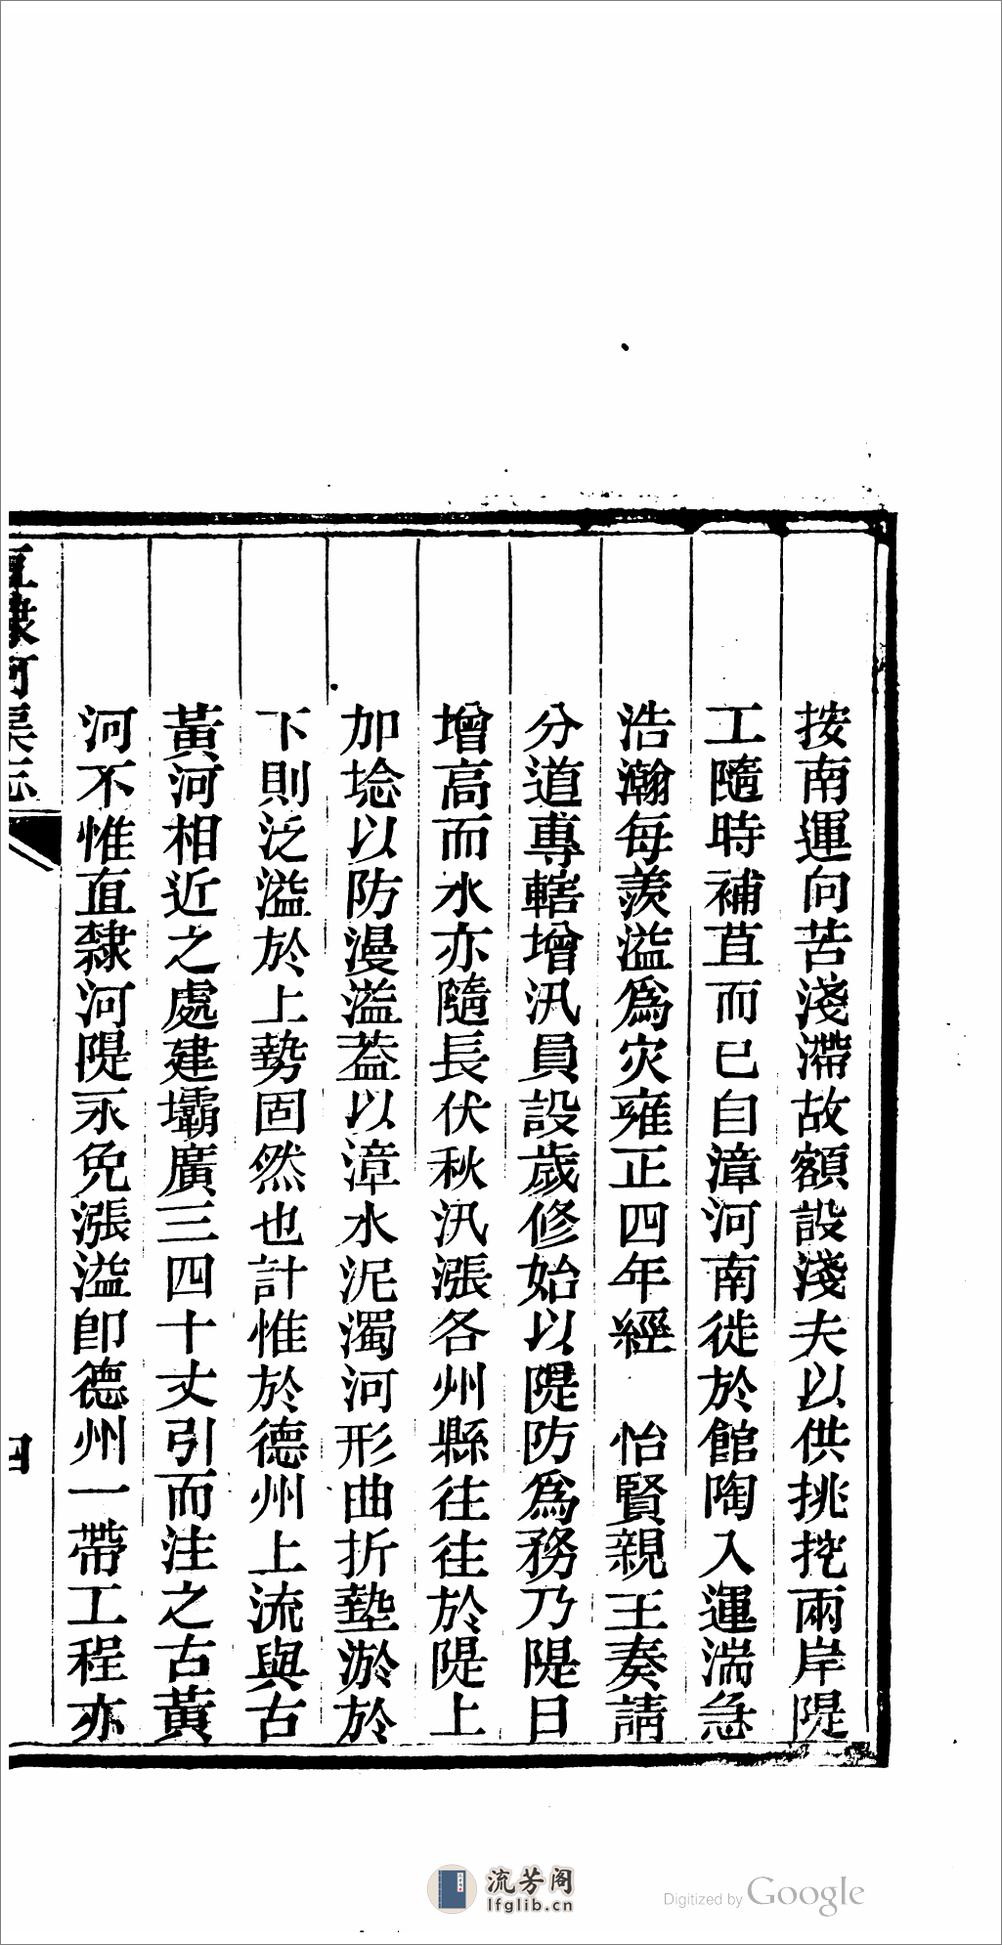 按南運向苦淺滯故額設淺夫以供挑挖兩岸隄
工隨時補苴而已自漳河南徙於館陶入運湍急
浩瀚每羨溢爲灾雍正四年經　怡賢親王奏請
分道專轄增汛員設歲修始以隄防爲務乃隄日
增高而水亦隨長伏秋汛漲各州縣往往於隄上
加埝以防漫溢葢以漳水泥濁河形曲折墊淤於
下則泛溢於上勢固然也計惟於德州上流與古
黃河相近之處建壩廣三四十丈引而注之古黃
河不惟直隸河隄永免漲溢卽德州一帶工程亦
直隸河渠志
四
流芳阁
lfglib.cn
Digitized by Google